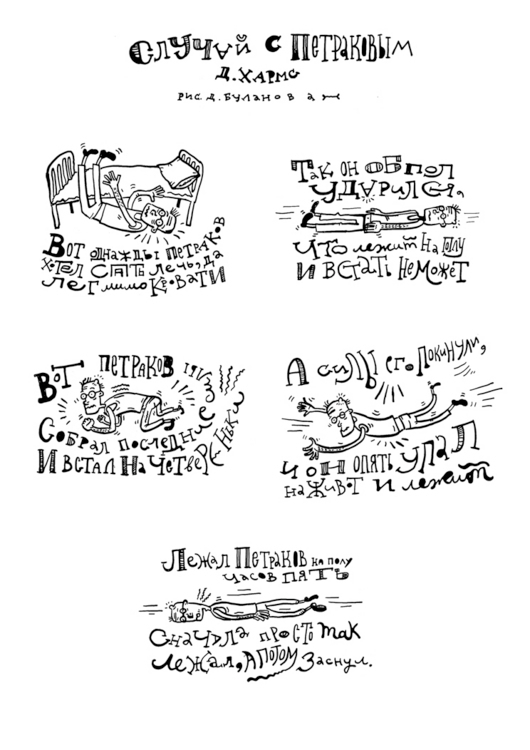 Случай с Петраковым
Д. Хармс
рис. Д. Буланов
Вот однажды Петраков
хотел спать лечь, да
лег мимо кровати
Так он об пол
ударился,
что лежит на полу
и встать не может
Вот Петраков
собрал последние силы
и встал на четвереньки
А силы его покинули,
и он опять упал
на живот и лежит
Лежал Петраков на полу
часов пять
Сначала просто так
лежал, а потом заснул.